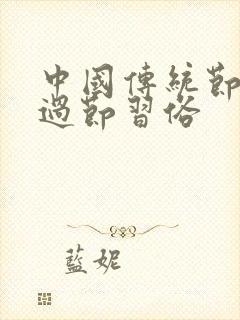 中國傳統節
過節習俗
藍妮